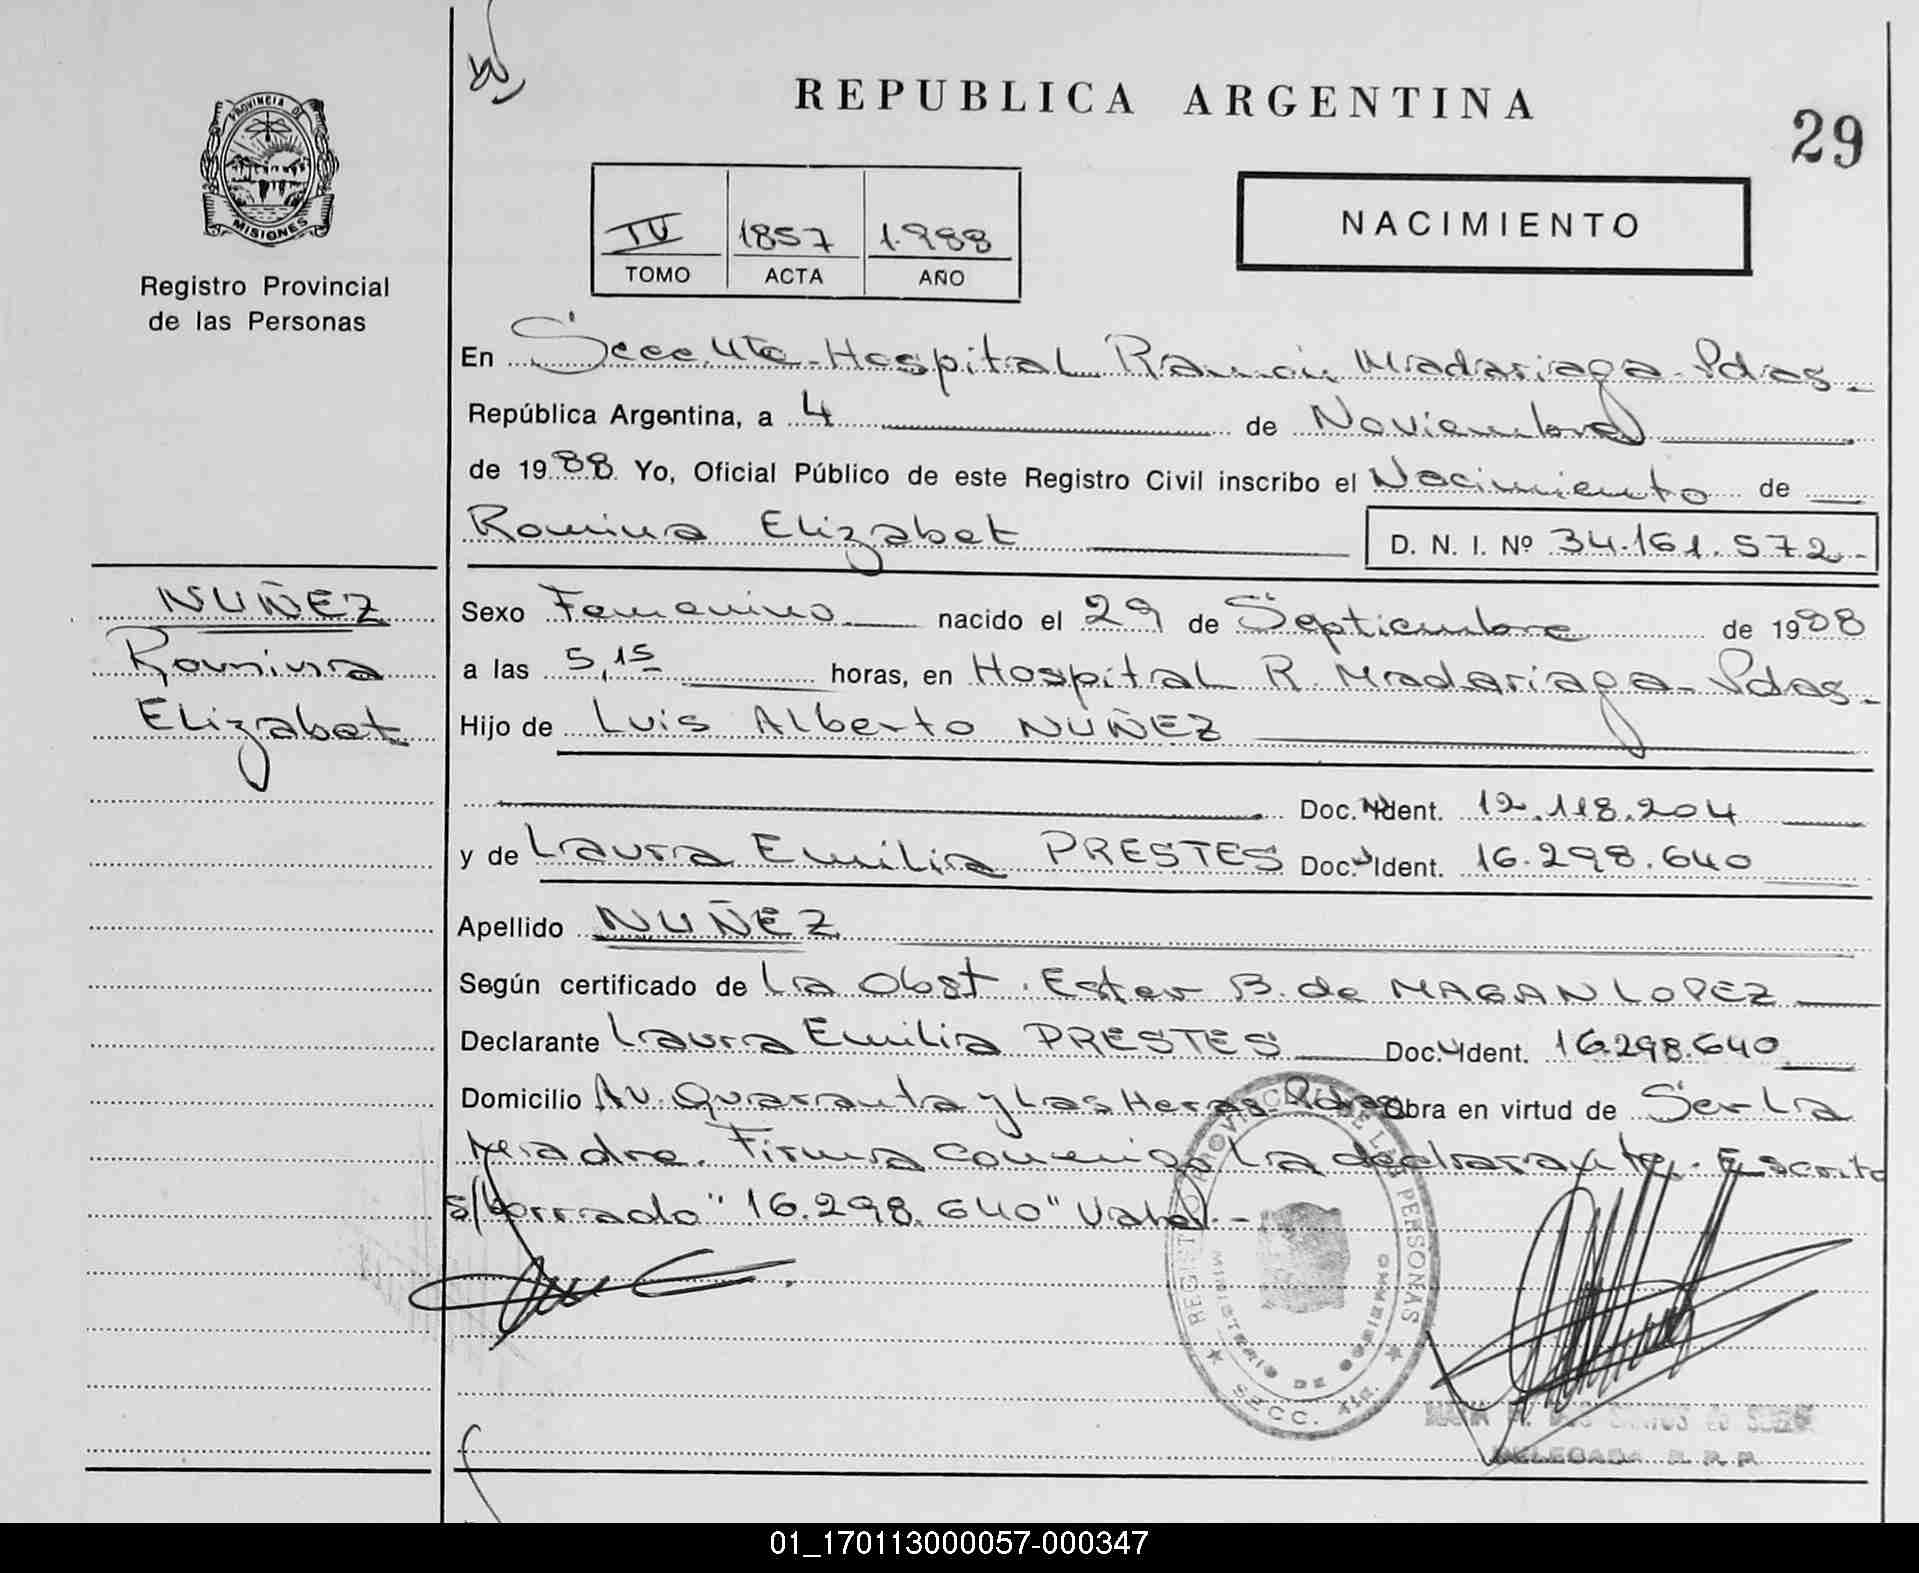 REPUBLICA ARGENTINA
29
PROVINCIA DE
MISIONES
Registro Provincial
de las Personas
IV 1857 1.988
TOMO ACTA AÑO
NACIMIENTO
En Hospital Ramón Madariaga - Pdas -
República Argentina, a 4 de Noviembre
de 1988 Yo, Oficial Público de este Registro Civil inscribo el Nacimiento de
Romina Elizabet D. N. I. Nº 34.161.572.-
NUÑEZ
Romina
Elizabet
Sexo Femenino nacido el 29 de Septiembre de 1988
a las 5,15 horas, en Hospital R. Madariaga - Pdas -
Hijo de Luis Alberto NUÑEZ
Doc. Ident. 12.118.204
y de Laura Emilia PRESTES Doc. Ident. 16.298.640
Apellido NUÑEZ
Según certificado de La Obst. Ester B. de MAGAN LOPEZ
Declarante Laura Emilia PRESTES Doc. Ident. 16.298.640
Domicilio Av. Quaranta y Las Heras - Pdas Obra en virtud de Ser La
Madre. Firma Conmigo La declarante. Escrito
s/borrado "16.298.640" Vale. -
REGISTRO PROVINCIAL DE LAS PERSONAS
MINISTERIO DE GOBIERNO
SECC.
DELEGADA R. P. P.
01_170113000057-000347